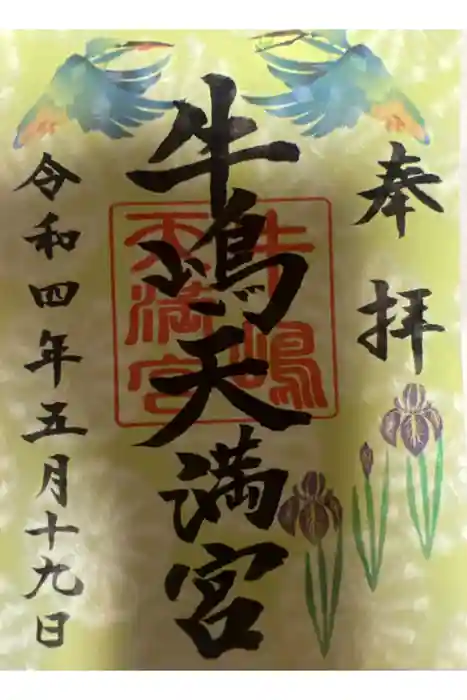 奉拝
牛嶋天満宮
牛嶋
天満宮
令和四年五月十九日